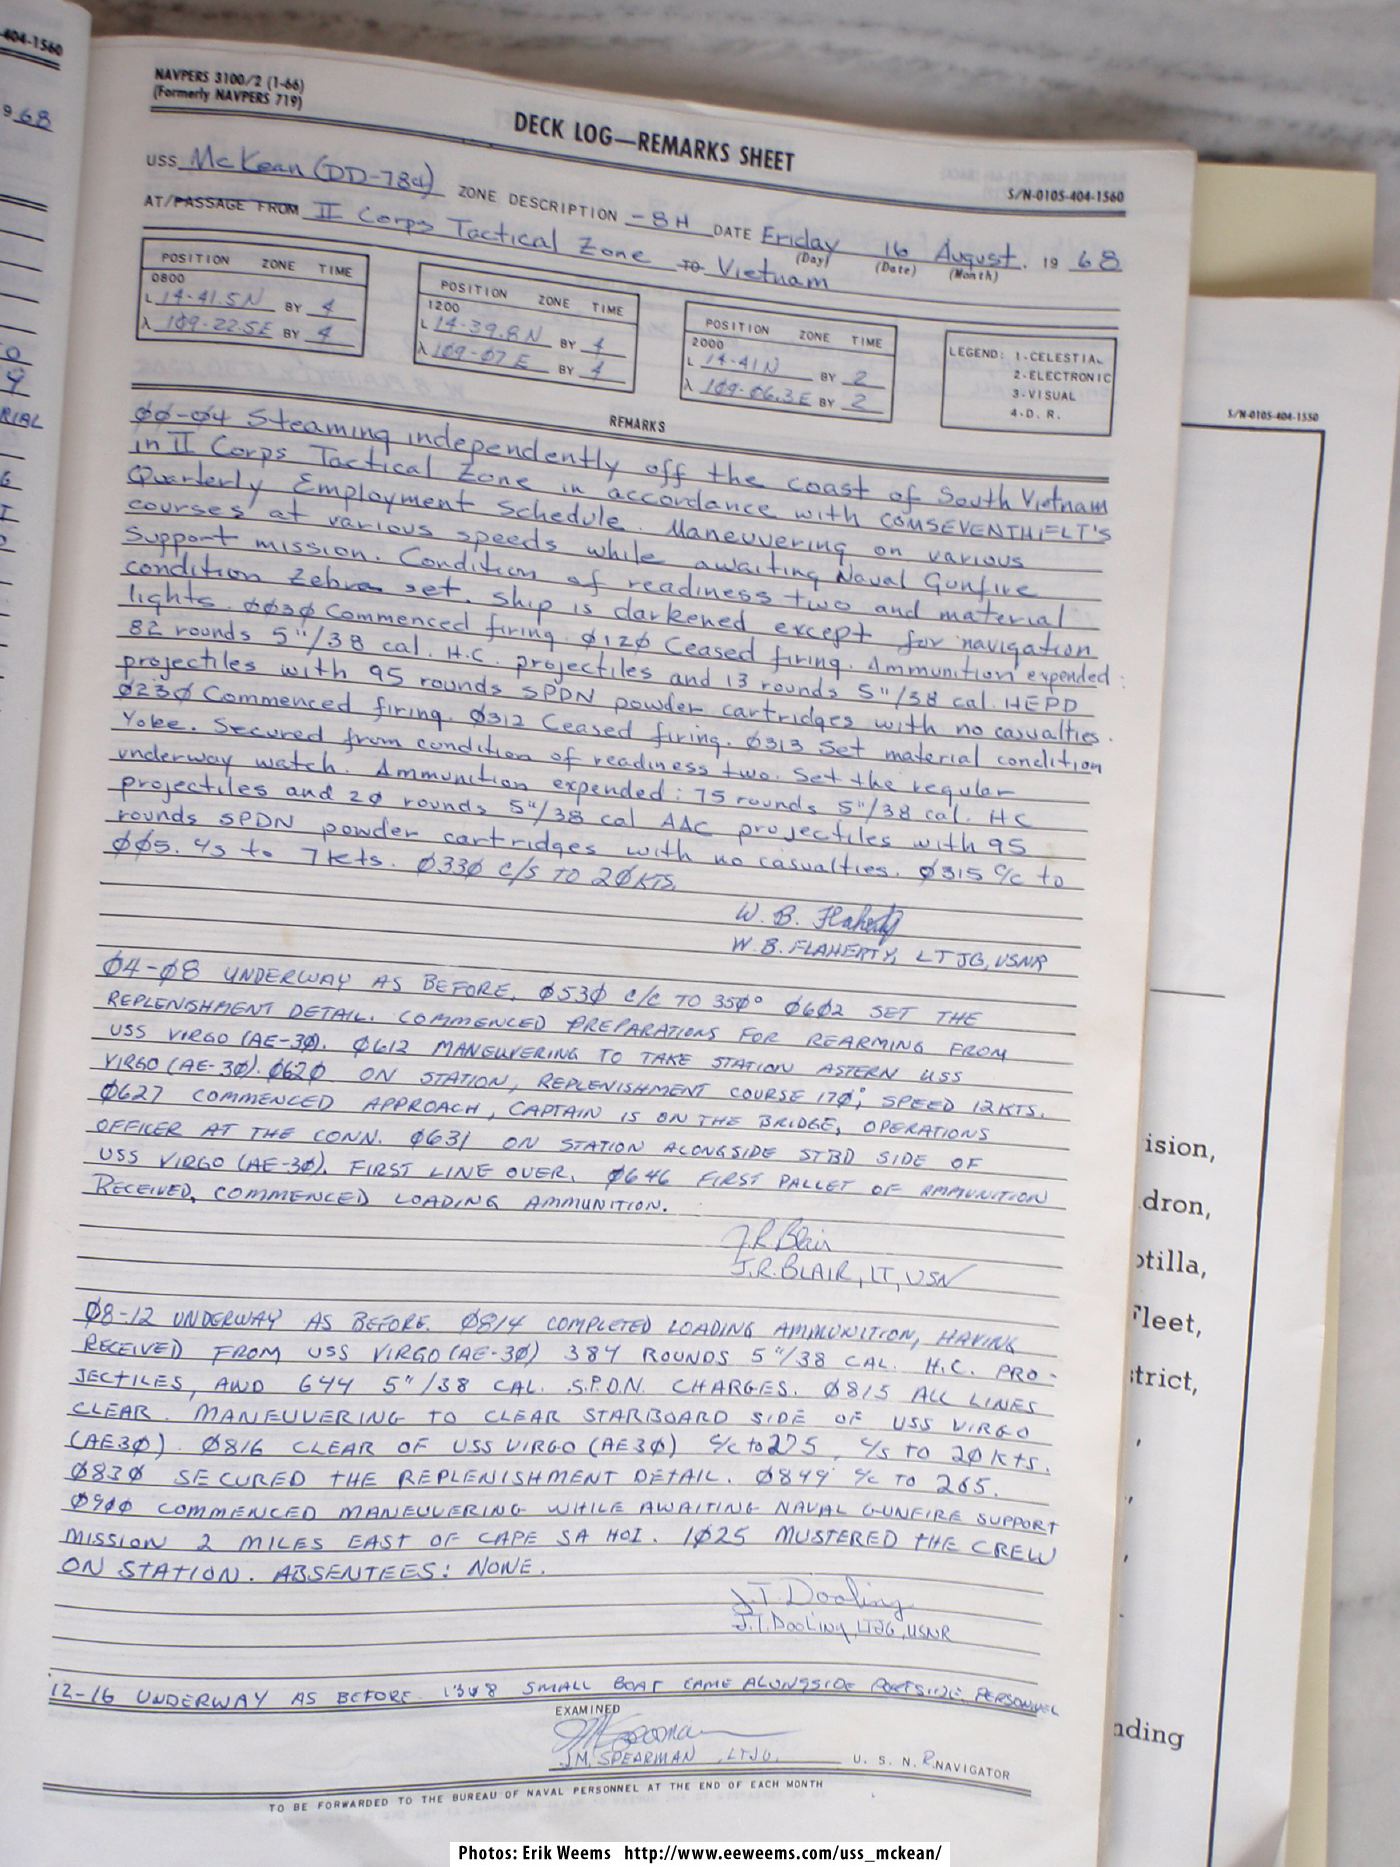 404-1560
9 68
NAVPERS 3100/2 (1-66)
(Formerly NAVPERS 719)
DECK LOG—REMARKS SHEET
S/N-0105-404-1560
USS McKean (DD-784) ZONE DESCRIPTION -8H DATE Friday 16 August. 19 68
(Day) (Date) (Month)
AT/PASSAGE FROM II Corps Tactical Zone TO Vietnam
POSITION ZONE TIME
0800
L 14-41.5N BY 4
λ 1Ø9-22.5E BY 4
POSITION ZONE TIME
1200
L 14-39.8N BY 4
λ 1Ø9-Ø7E BY 4
POSITION ZONE TIME
2000
L 14-41N BY 2
λ 1Ø9-Ø6.3E BY 2
LEGEND: 1-CELESTIAL
2-ELECTRONIC
3-VISUAL
4-D. R.
REMARKS
ØØ-Ø4 Steaming independently off the coast of South Vietnam
in II Corps Tactical Zone in accordance with COMSEVENTHFLT's
Quarterly Employment Schedule. Maneuvering on various
courses at various speeds while awaiting Naval Gunfire
Support mission. Condition of readiness two and material
condition Zebra set. Ship is darkened except for navigation
lights. ØØ3Ø Commenced firing. Ø12Ø Ceased firing. Ammunition expended:
82 rounds 5"/38 cal. H.C. projectiles and 13 rounds 5"/38 cal. HEPD
projectiles with 95 rounds SPDN powder cartridges with no casualties.
Ø23Ø Commenced firing. Ø312 Ceased firing. Ø313 Set material condition
Yoke. Secured from condition of readiness two. Set the regular
underway watch. Ammunition expended: 75 rounds 5"/38 cal. HC
projectiles and 2Ø rounds 5"/38 cal AAC projectiles with 95
rounds SPDN powder cartridges with no casualties. Ø315 c/c to
ØØ5. c/s to 7kts. Ø33Ø c/s TO 2ØKTS.
W. B. Flaherty
W. B. FLAHERTY, LTJG, USNR
Ø4-Ø8 UNDERWAY AS BEFORE. Ø53Ø c/c TO 35Ø° Ø6Ø2 SET THE
REPLENISHMENT DETAIL. COMMENCED PREPARATIONS FOR REARMING FROM
USS VIRGO (AE-3Ø). Ø612 MANEUVERING TO TAKE STATION ASTERN USS
VIRGO (AE-3Ø). Ø62Ø ON STATION, REPLENISHMENT COURSE 17Ø°, SPEED 12KTS.
Ø627 COMMENCED APPROACH, CAPTAIN IS ON THE BRIDGE, OPERATIONS
OFFICER AT THE CONN. Ø631 ON STATION ALONGSIDE STBD SIDE OF
USS VIRGO (AE-3Ø). FIRST LINE OVER. Ø646 FIRST PALLET OF AMMUNITION
RECEIVED, COMMENCED LOADING AMMUNITION.
J.R. Blair
J.R. BLAIR, LT, USN
Ø8-12 UNDERWAY AS BEFORE. Ø814 COMPLETED LOADING AMMUNITION, HAVING
RECEIVED FROM USS VIRGO (AE-3Ø) 384 ROUNDS 5"/38 CAL. H.C. PRO-
JECTILES, AND 644 5"/38 CAL. S.P.D.N. CHARGES. Ø815 ALL LINES
CLEAR. MANEUVERING TO CLEAR STARBOARD SIDE OF USS VIRGO
(AE3Ø). Ø816 CLEAR OF USS VIRGO (AE3Ø) c/c to 275, c/s TO 2Økts.
Ø83Ø SECURED THE REPLENISHMENT DETAIL. Ø849 c/c TO 265.
Ø9ØØ COMMENCED MANEUVERING WHILE AWAITING NAVAL GUNFIRE SUPPORT
MISSION 2 MILES EAST OF CAPE SA HOI. 1Ø25 MUSTERED THE CREW
ON STATION. ABSENTEES: NONE.
J.T. Dooling
J.T. Dooling, LTJG, USNR
12-16 UNDERWAY AS BEFORE. SMALL BOAT CAME ALONGSIDE PORTSIDE, PERSONNEL
EXAMINED
J.M. SPEARMAN, LTJG. U. S. N. R. NAVIGATOR
TO BE FORWARDED TO THE BUREAU OF NAVAL PERSONNEL AT THE END OF EACH MONTH
S/N-0105-404-1550
ision,
dron,
otilla,
Fleet,
strict,
nding
Photos: Erik Weems http://www.eeweems.com/uss_mckean/